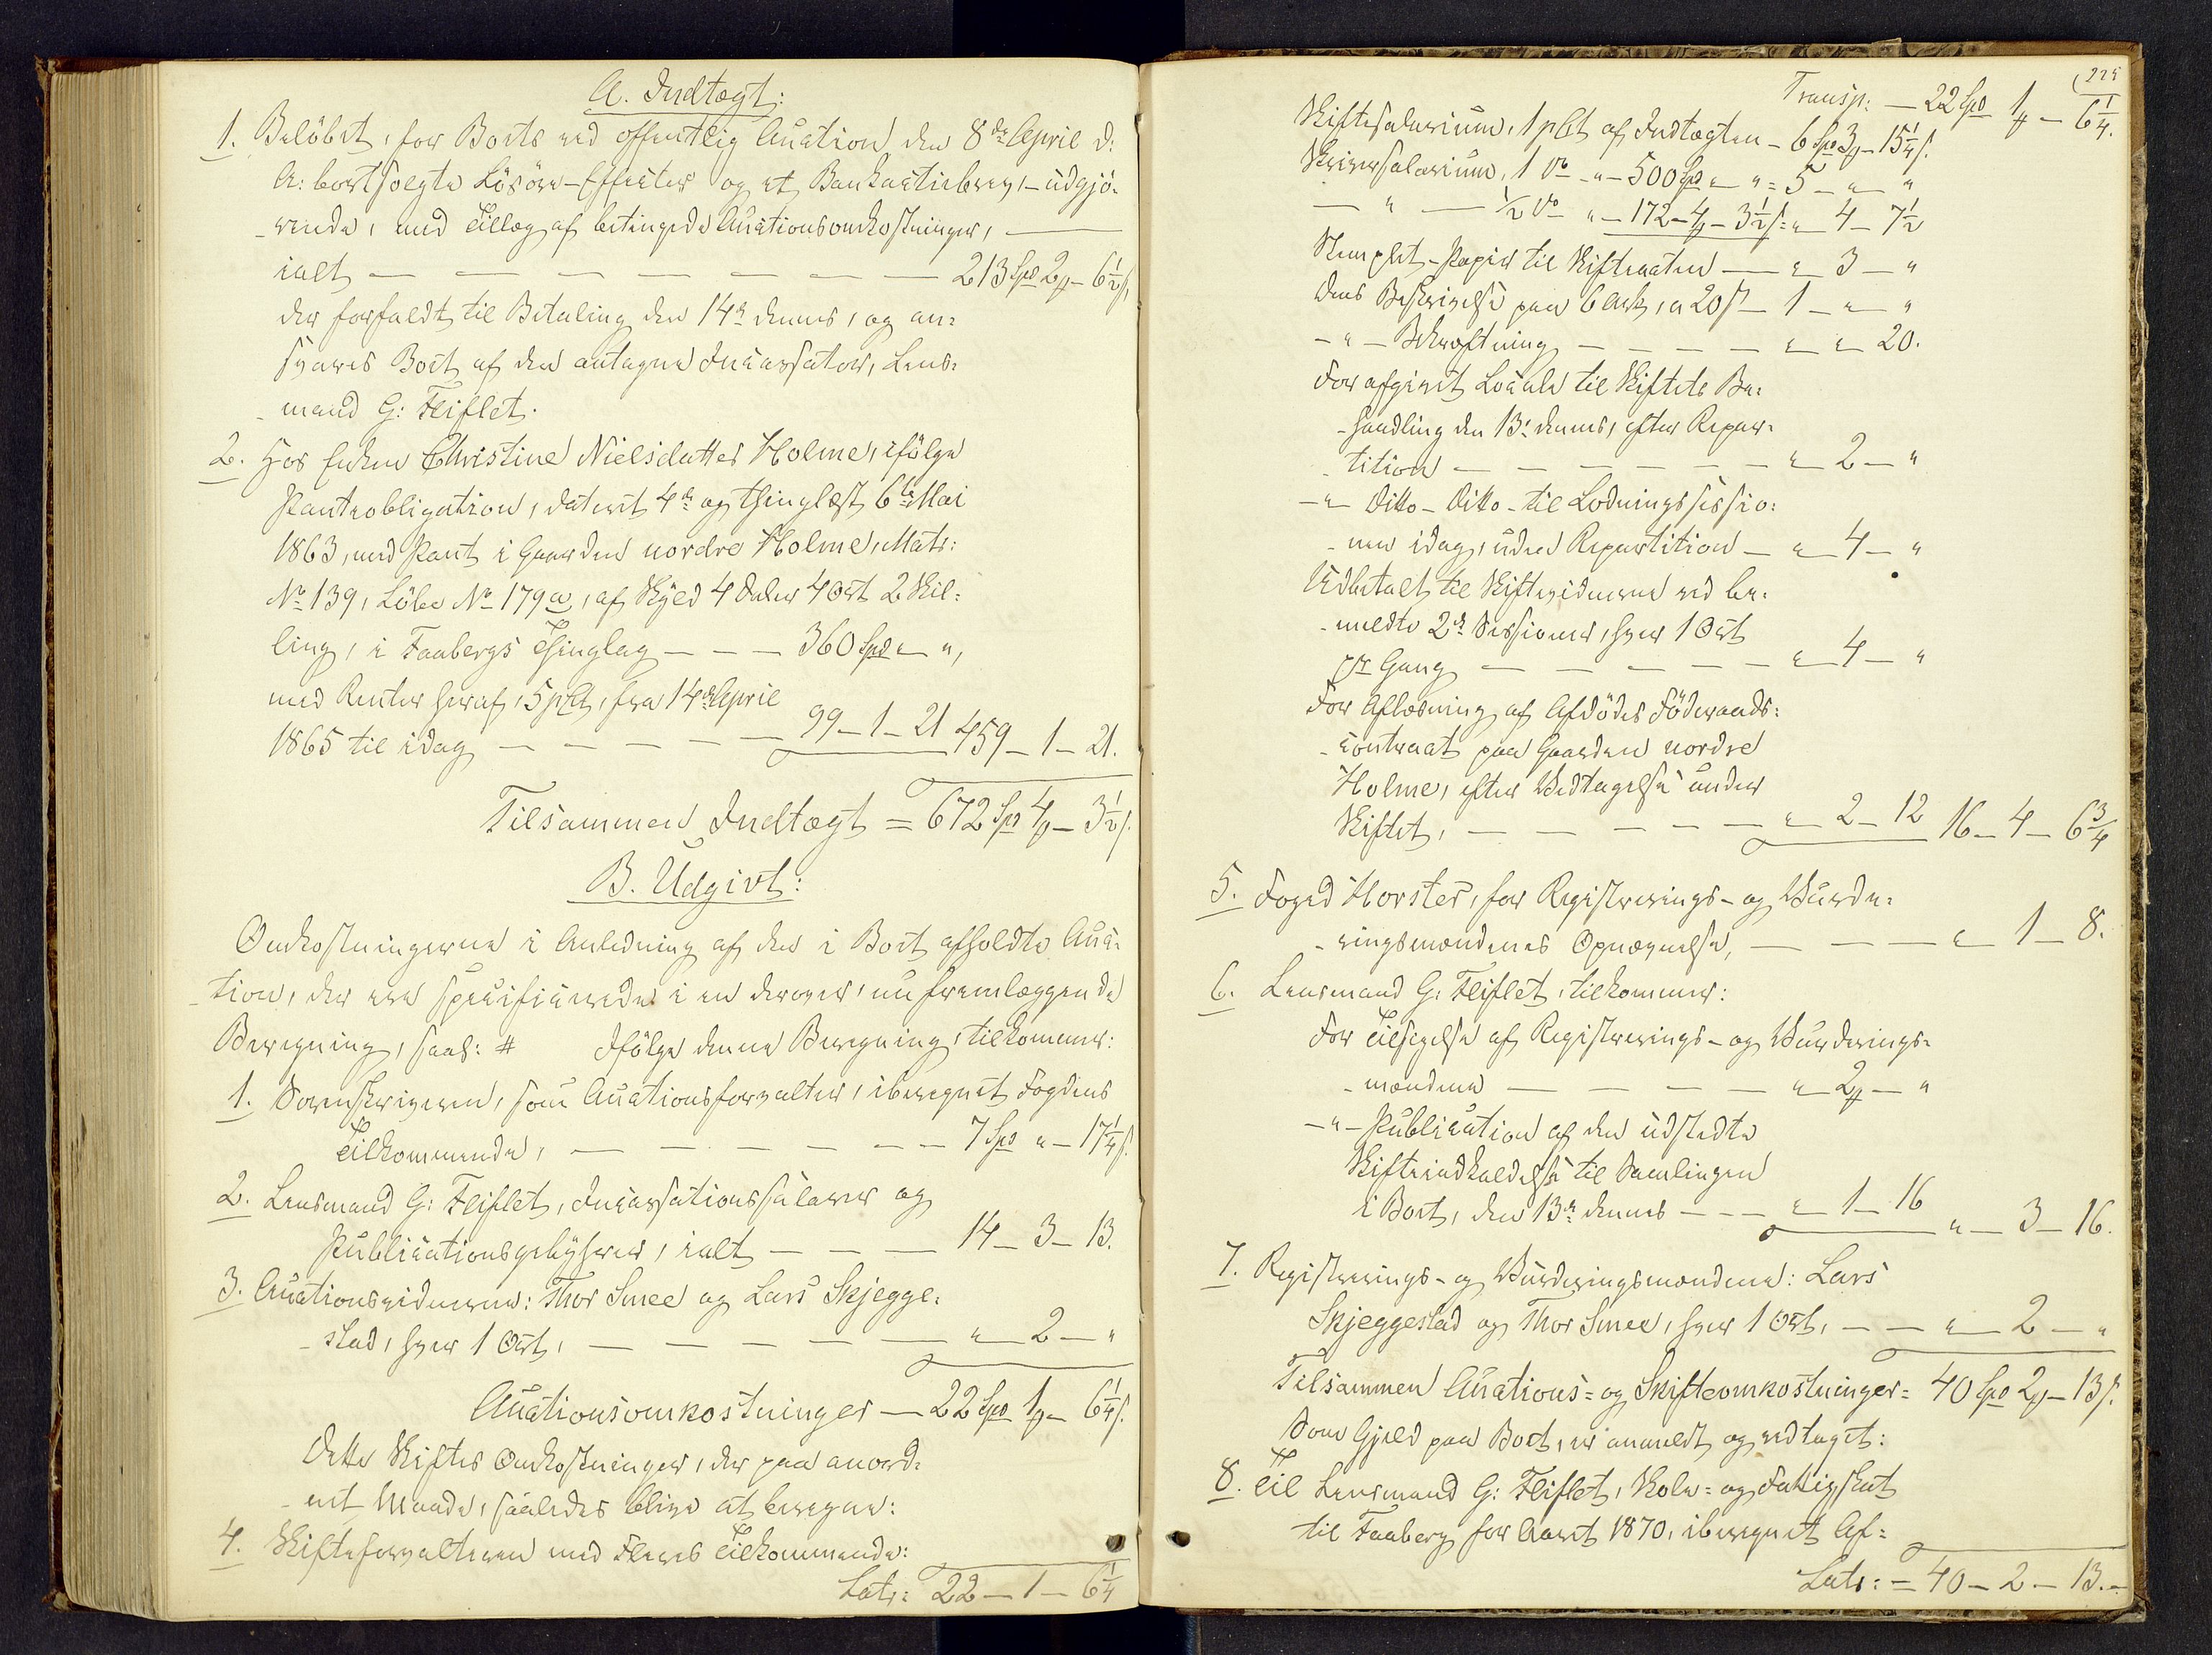 A. Indtægt:
1. Beløbet, for Boets ved offentlig Auction den 8de April d:
A: bortsolgte Løsøre-Effecter og et Bankactiebrev, – udgjø-
-rende, med Tillæg af betingede Auctionsomkostninger, —
ialt — — — — — — — 213 Spd 2 # – 6 1/2 s,
der forfaldt til Betaling den 14de dennes, og an-
svares Boet af den antagne Incassator, Lens-
-mand G: Fliflet.
2. Hos Enken Christine Nielsdatter Holme, ifølge
Pantobligation, dateret 4de og thinglæst 6te Mai
1863, med Pant i Gaarden nordre Holme, Matr:
No 139, Løbe No 179a, af Skyld 4 Daler 4 Ort 2 Skil-
ling, i Faabergs Thinglag — — — 360 Spd " — ",
med Renter heraf, 5 pCt, fra 14de April
1865 til idag — — — — — 99 – 1 – 21 459 – 1 – 21.
Tilsammen Indtægt = 672 Spd 4 # – 3 1/2 s.
B. Udgivt:
Omkostningerne i Anledning af den i Boet afholdte Auc-
-tion, der ere specificerede i en derover, nu fremlæggende
Beregning, saal: # Ifølge denne Beregning, tilkommer:
1. Sorenskriveren, som Auctionsforvalter, iberegnet Fogdens
Tilkommende, — — — — — 7 Spd " – 17 1/4 s.
2. Lensmand G: Fliflet, Incassationssalarer og
Publicationsgebyhrer, ialt — — — 14 – 3 – 13.
3. Auctionsvidnerne: Thor Smee og Lars Skjegge-
-stad, hver 1 Ort, — — — — — " — 2 — "
Auctionsomkostninger — 22 Spd 1 # – 6 1/4 s.
Dette Skiftes Omkostninger, der paa anord-
-net Maade, saaledes blive at beregne:
4. Skifteforvalteren med Fleres Tilkommende:
Latr: 22 — 1 — 6 1/4
225
Transp: — 22 Spd 1 # — 6 1/4.
Skiftesalarium, 1 pCt af Indtægten – 6 Spd 3 # – 15 1/4 s.
Skriversalarium, 1 do – " – 500 Spd " – " = 5 – " – "
— " — 1/2 do " – 172 – 4 # – 3 1/2 s = " 4 – 7 1/2
Stemplet-Papir til Skifteacten — " 3 — "
Dens Beskrivelse paa 6 Ark, a 20 s – 1 – " – "
– " – Bekræftning — — — — " " 20.
For afgivet Locale til Skiftets Be-
-handling den 13de dennes, efter Repar-
-tition — — — — — — " 2 — "
– " Ditto – Ditto – til Lodningssessio-
-nen idag, uden Repartition — " 4 — "
Udbetalt til Skiftevidnerne ved be-
-meldte 2de Sessioner, hver 1 Ort
pr Gang — — — — — " 4 — "
For Aflæsning af Afdødes Føderaads-
-contract paa Gaarden nordre
Holme, efter Vedtagelse under
Skiftet, — — — — — " 2 – 12 16 – 4 – 6 3/4
5. Foged Horster, for Registrerings- og Vurde-
-ringsmændenes Opnævnelse, — — — " 1 – 8.
6. Lensmand G: Fliflet, tilkommer:
For Tilsigelse af Registrerings- og Vurderings-
-mændene — — — — " 2 # — "
– " – Publication af den udstedte
Skifteindkaldelse til Samlingen
i Boet, den 13de dennes — — — " 1 – 16 " — 3 – 16.
7. Registrerings- og Vurderingsmændene: Lars
Skjeggestad og Thor Smee, hver 1 Ort, — — " 2 — "
Tilsammen Auctions- og Skifteomkostninger = 40 Spd 2 # – 13 s.
Som Gjeld paa Boet, er anmeldt og vedtaget:
8. Til Lensmand G: Fliflet, Skole- og Fattigskat
til Faaberg for Aaret 1870, iberegnet Af-
Latr: = 40 – 2 – 13. –